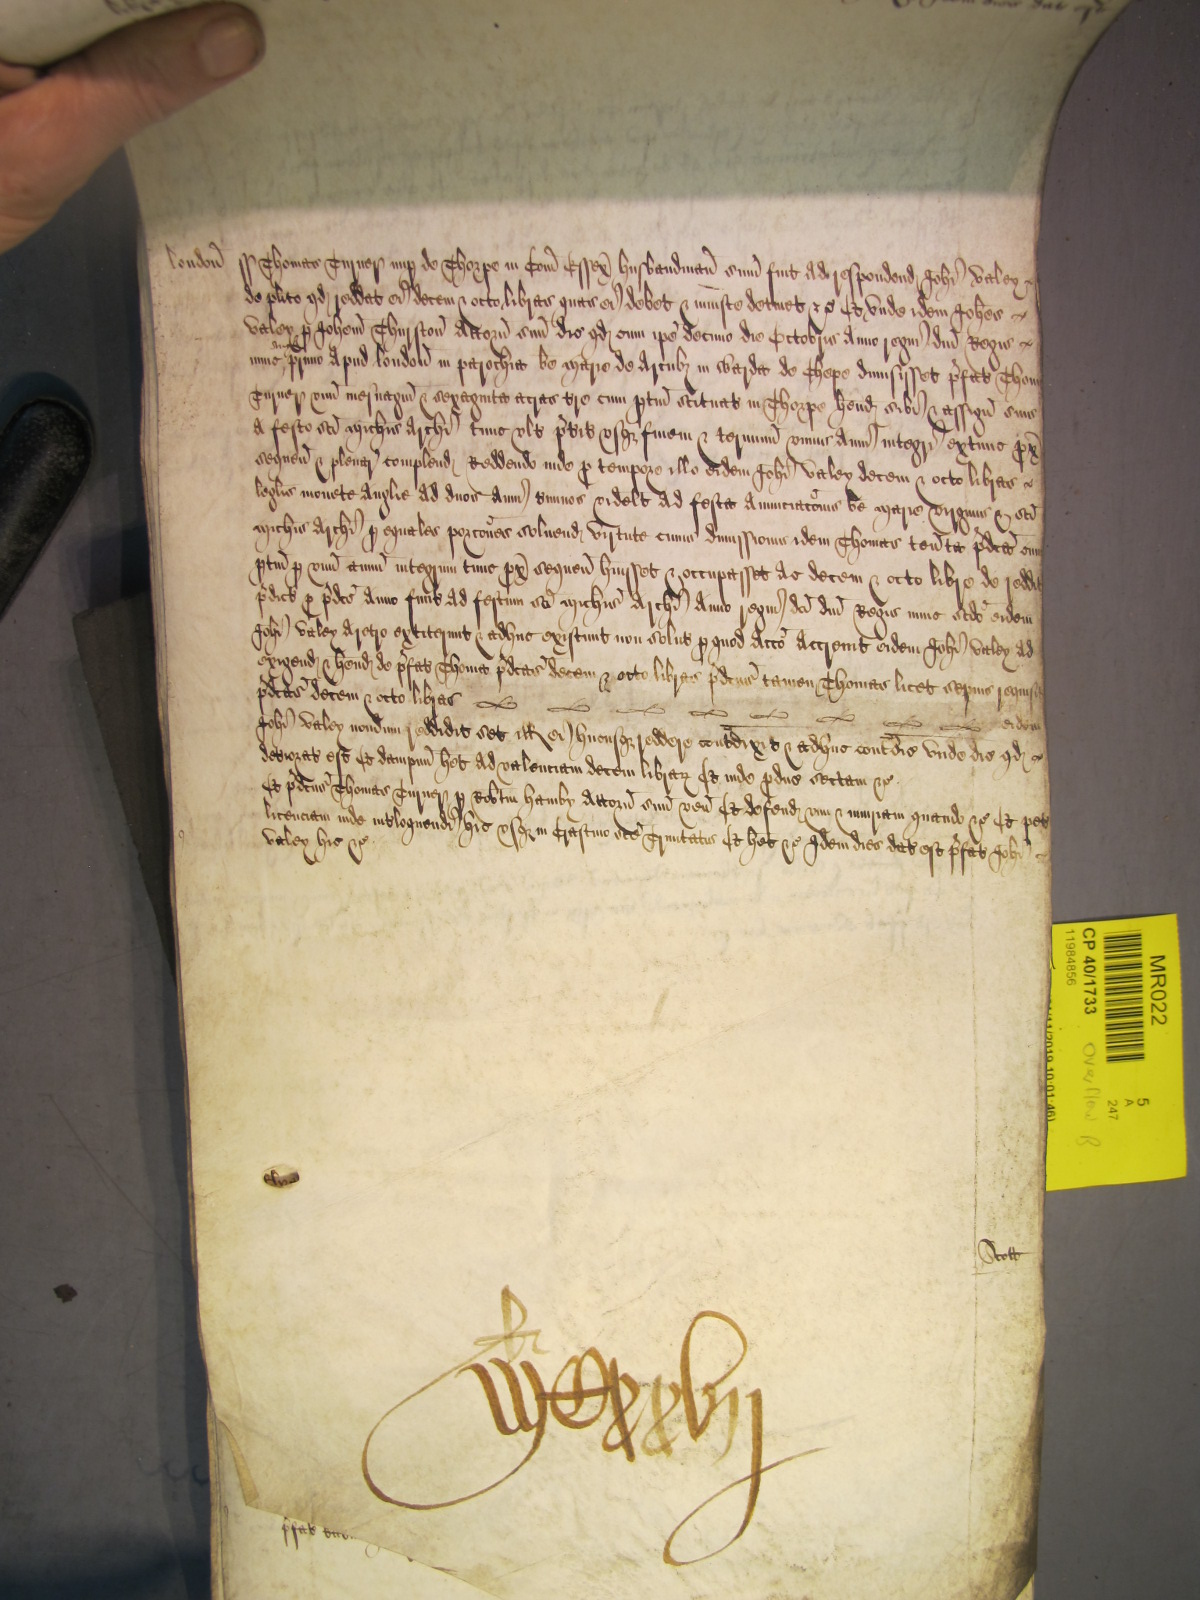 london̄ ss Thomas Turner nup de Thorpe in Com̄ Essex husbandman̄ sum̄ fuit ad respondend Joh̄i Valey
de pl̄ito qd reddat ei decem & octo libras quas ei debet & iniuste detinet &c Et unde idem Joh̄es
Valey p Joh̄em Thurston Attorn̄ suū dic qd cum ip̄e decimo die Octobris Anno regni dn̄i Regis
nunc primo apud london̄ in parochia be Marie de Arcub in Warda de Chepe dimisisset p̄fat Thom
Turner unū mesuagiū & sexaginta acras t̄re cum ptin̄ scituat in Thorpe h̄end sibi & assign̄ suis
a festo sc̄i Mich̄is Arch̄i tunc ult p̄t̄it usq finem & terminū unius Anni integri extunc p̄x
sequen̄ & plenar̄ complend Reddendo inde p tempore illo eidem Joh̄i Valey decem & octo libras
leglis monete Anglie ad duos Anni t̄minos videlt ad festa Annunciac̄ois be Marie virginis & sc̄i
Mich̄is Arch̄i p equales porc̄ōes solvend virtute cuius dimissionis idem Thomas ten̄ta p̄dc̄a cum
ptin̄ p unū annū integrum tunc p̄x sequen̄ h̄uisset & occupasset ac decem & octo libre de reddit
p̄dict p p̄dc̄o Anno finit ad festum sc̄i Mich̄is Arch̄i Anno regni dc̄i dn̄i Regis nunc sc̄do eidem
Joh̄i Valey aretro extiterunt & adhuc existunt non solut p quod acc̄o accrevit eidem Joh̄i Valey ad
exigend & h̄end de p̄fat Thoma p̄dc̄as decem & octo libras p̄dc̄us tamen Thomas licet sepius requisit
p̄dc̄as decem & octo libras eidem
Joh̄i Valey nondum reddidit set ill ei hucusq reddere cont̄dixit & adhuc cont̄dic Unde dic qd
det̄iorat est Et dampnū h̄et ad valenciam decem librar̄ Et inde p̄duc sectam &c
Et p̄dc̄us Thomas Turner p Rob̄tm hamby Attorn̄ suū ven̄ Et defend vim & iniuriam quando &c Et pet
licenciam inde int̄loquendi hic usq in Crastino sc̄e Trinitatis Et h̄et &c Idem dies dat est p̄fat Joh̄i
Valey hic &c
Scott
MR022
CP 40/1733
11984856
5
A
247
Overflow B
p̄fat